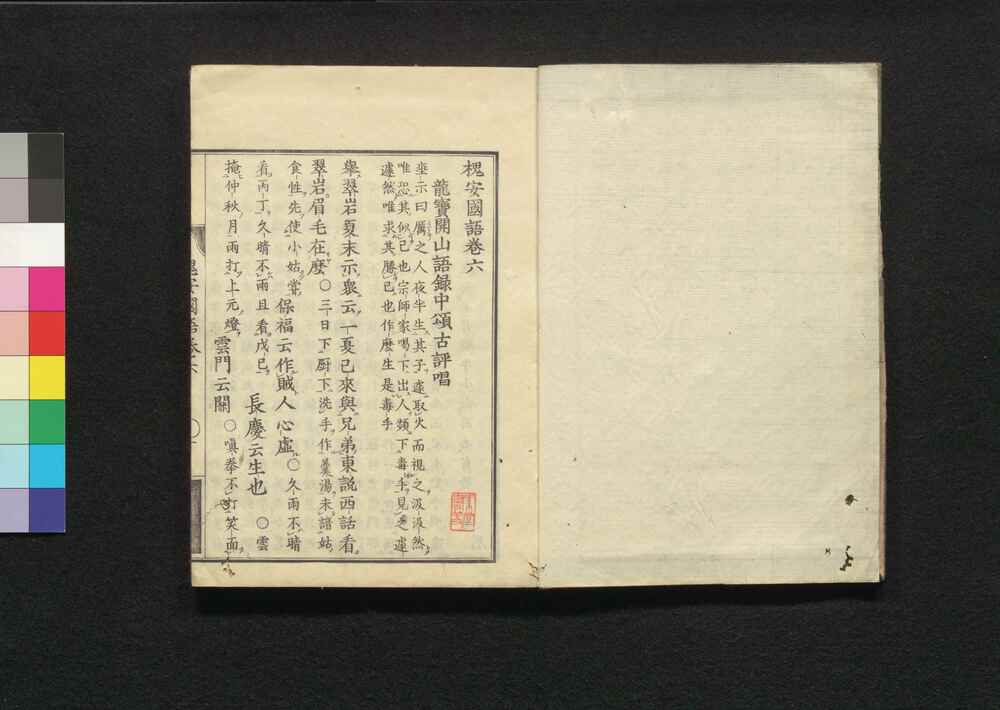 槐安國語卷六
龍寶開山語錄中頌古評唱
垂示曰厲之人夜半生其子遽取火而視之汲汲然
唯恐其似己也宗師家喝下出人類下毒手見之遽
遽然唯求其勝己也作麼生是毒手
舉翠岩夏末示衆云一夏已來與兄弟東說西話看
翠岩眉毛在麼○三日下厨下洗手作羹湯未諳姑
食性先使小姑嘗保福云作賊人心虛○久雨不晴
看丙丁久晴不雨且看戊己長慶云生也○雲
掩仲秋月雨打上元燈雲門云關○嗔拳不打笑面